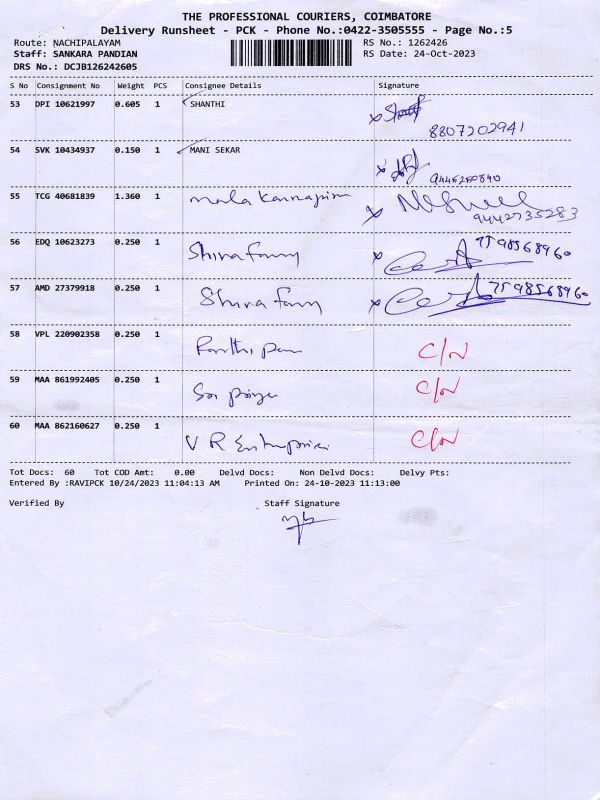 THE PROFESSIONAL COURIERS, COIMBATORE
Delivery Runsheet - PCK - Phone No.:0422-3505555 - Page No.:5
Route: NACHIPALAYAM RS No.: 1262426
Staff: SANKARA PANDIAN RS Date: 24-Oct-2023
DRS No.: DCJB126242605
S No Consignment No Weight PCS Consignee Details Signature
53 DPI 10621997 0.605 1 SHANTHI
8807202941
54 SVK 10434937 0.150 1 MANI SEKAR
55 TCG 40681839 1.360 1 mala
9442735283
56 EDQ 10623273 0.250 1 7598568960
57 AMD 27379918 0.250 1 7598568960
58 VPL 220902358 0.250 1 C/N
59 MAA 861992405 0.250 1 C/N
60 MAA 862160627 0.250 1 V R Enterprises C/N
Tot Docs: 60 Tot COD Amt: 0.00 Delvd Docs: Non Delvd Docs: Delvy Pts:
Entered By :RAVIPCK 10/24/2023 11:04:13 AM Printed On: 24-10-2023 11:13:00
Verified By Staff Signature